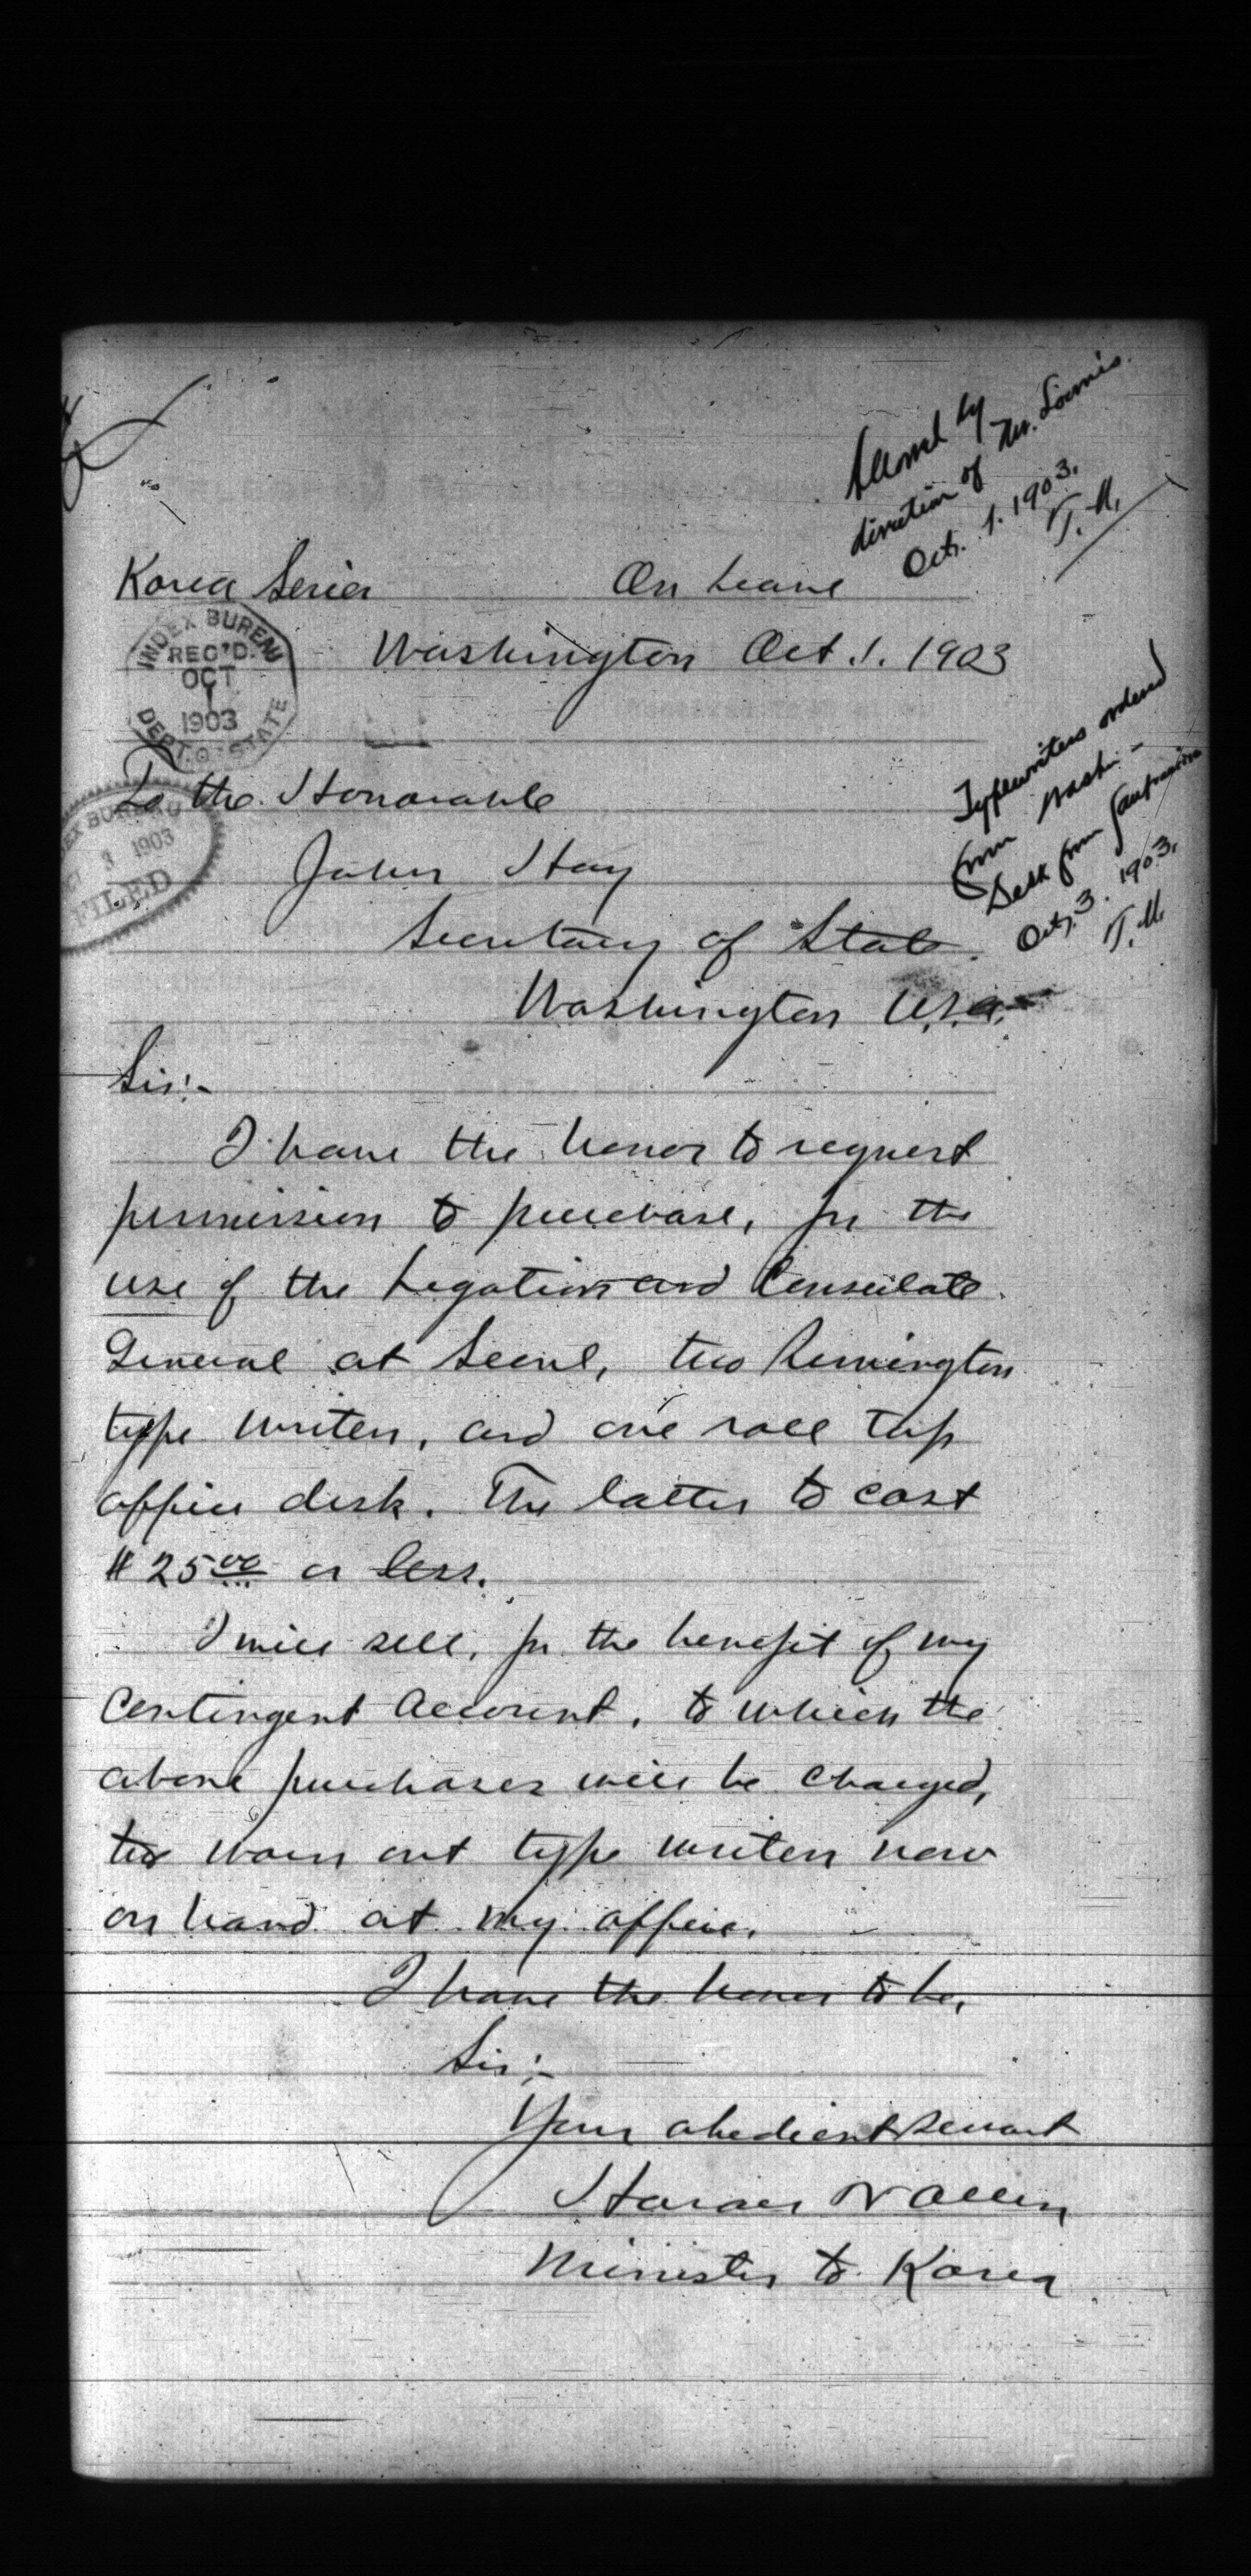 Allowed by
direction of Mr. Loomis.
Oct. 1. 1903.
T. M.
Korea Series On Leave
INDEX BUREAU
REC'D.
OCT
1
1903
DEPT. O STATE
Washington Oct. 1. 1903
Typewriters ordered
from Wash. -
Desk from Sanfrancisco
Oct. 3. 1903.
T. M.
To the Honorable
INDEX BUREAU
3 1903
FILED
John Hay
Secretary of State.
Washington U.S.A.
Sir:-
I have the honor to request
permission to purchase, for the
use of the Legation and Consulate
General at Seoul, two Remington
type writers, and one roll top
office desk. The latter to cost
$25.00 or less.
I will sell, for the benefit of my
Contingent Account, to which the
above purchases will be charged,
two worn out type writers now
on hand at my office.
I have the honor to be,
Sir:-
Your obedient servant
Horace N Allen
Minister to Korea